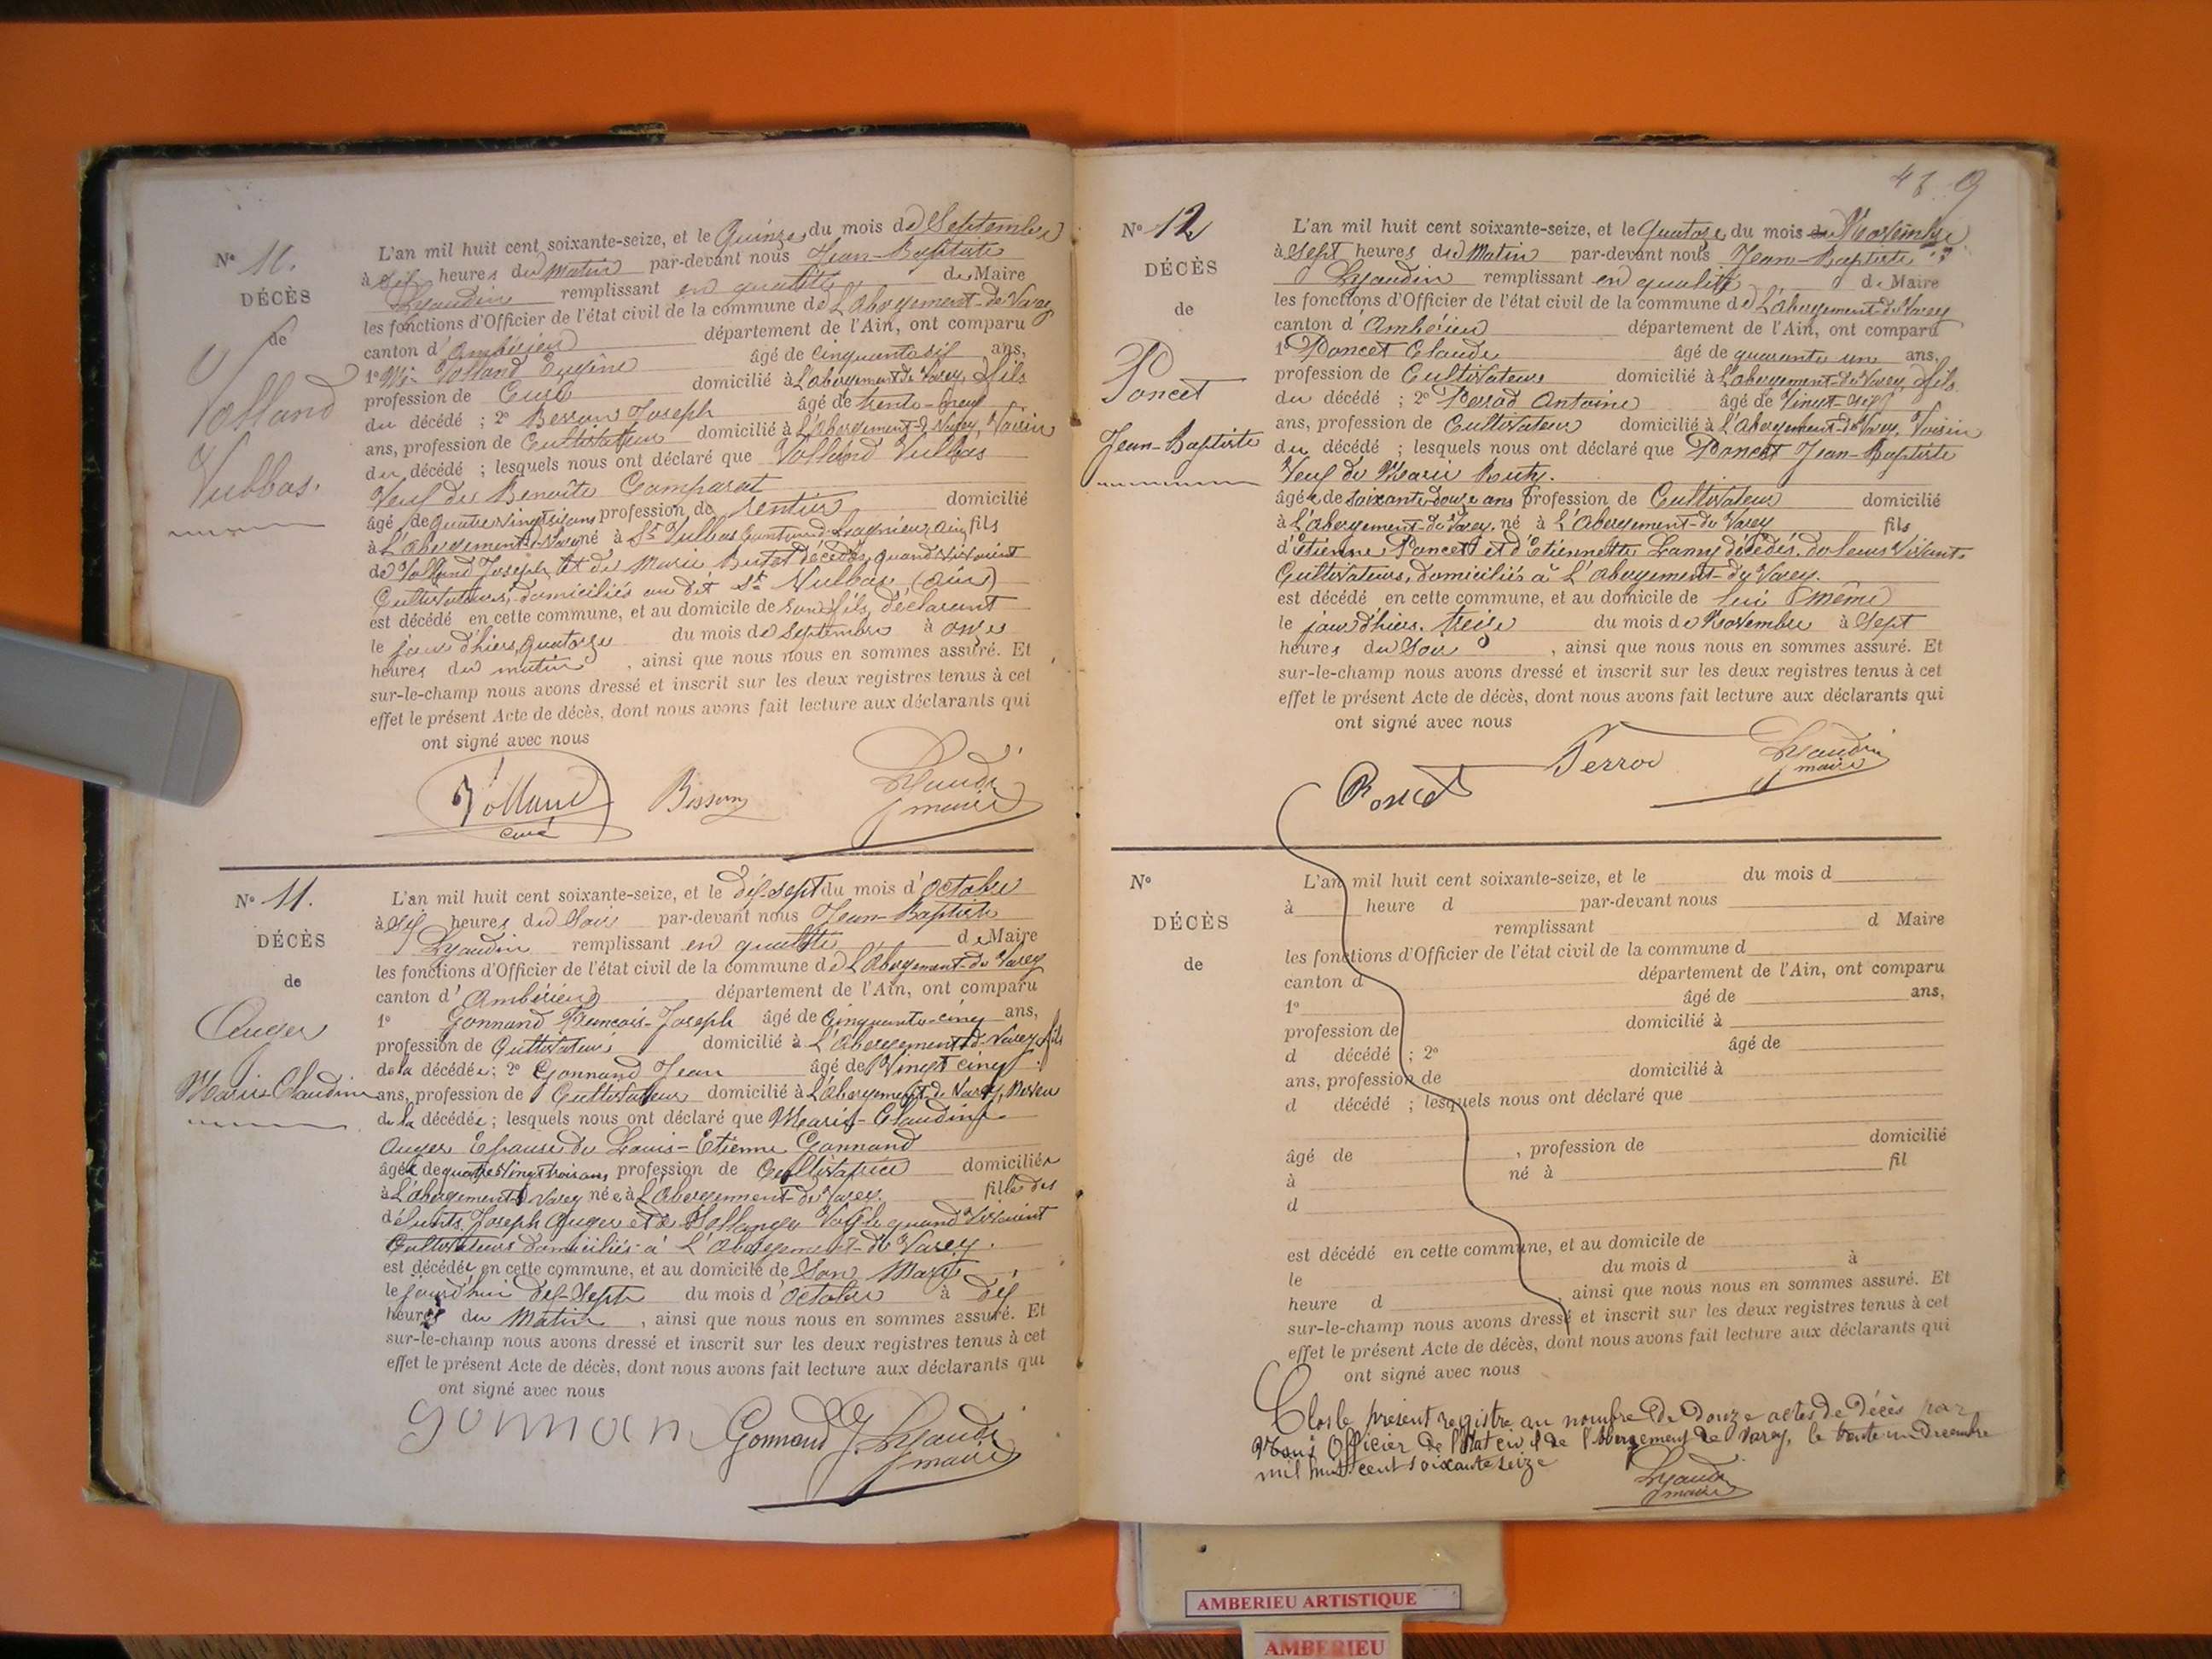 N° 11.
DÉCÈS
de
Volland
Vulbas.
L'an mil huit cent soixante-seize, et le Quinze du mois de Septembre
à dix heures du Matin par-devant nous Jean-Baptiste
Lyaudin remplissant en qualité de Maire
les fonctions d'Officier de l'état civil de la commune de L'abergement-de Varey
canton d'Ambérieu département de l'Ain, ont comparu
1° Volland Eugène âgé de Cinquante six ans,
profession de Curé domicilié à L'abergement de Varey, fils
du décédé ; 2° Joseph âgé de trente-neuf
ans, profession de Cultivateur domicilié à L'abergement-de Varey, Voisin
du décédé ; lesquels nous ont déclaré que Volland Vulbas
Veuf de Benoîte Comparat
âgé de quatre vingt six ans profession de rentier domicilié
à L'abergement de Varey né à St Vulbas Canton de Lagnieu, ain fils
de Volland Joseph et de Marie décédés, quand vivaient
Cultivateurs, domiciliés au dit St Vulbas (ain)
est décédé en cette commune, et au domicile de son fils, déclarant
le jour d'hier, quatorze du mois de Septembre à onze
heures du matin , ainsi que nous nous en sommes assuré. Et
sur-le-champ nous avons dressé et inscrit sur les deux registres tenus à cet
effet le présent Acte de décès, dont nous avons fait lecture aux déclarants qui
ont signé avec nous
Volland
curé
Lyaudin
maire
N° 11.
DÉCÈS
de
Auger
Marie Claudine
L'an mil huit cent soixante-seize, et le dix-sept du mois d'octobre
à six heures du Soir par-devant nous Jean-Baptiste
Lyaudin remplissant en qualité de Maire
les fonctions d'Officier de l'état civil de la commune de L'Abergement-de Varey
canton d'Ambérieu département de l'Ain, ont comparu
1° Gonnand François-Joseph âgé de Cinquante-cinq ans,
profession de Cultivateur domicilié à L'Abergement-de-Varey, fils
de la décédée; 2° Gonnand Jean âgé de Vingt cinq
ans, profession de Cultivateur domicilié à L'abergement de Varey, Neveu
de la décédée ; lesquels nous ont déclaré que Marie-Claudine
Auger Epouse de Louis-Etienne Gonnand
âgée de quatre Vingt trois ans, profession de Cultivatrice domiciliée
à L'abergement de Varey née à L'Abergement-de Varey. fille des
défunts Joseph Auger et de quand Vivaient
Cultivateurs domiciliés à L'abergement-de Varey.
est décédée en cette commune, et au domicile de Son Mari
le jourd'hui dix-Sept du mois d'octobre à dix
heures du Matin , ainsi que nous nous en sommes assuré. Et
sur-le-champ nous avons dressé et inscrit sur les deux registres tenus à cet
effet le présent Acte de décès, dont nous avons fait lecture aux déclarants qui
ont signé avec nous
gonnan Gonnand J. Lyaudin
maire
N° 12
DÉCÈS
de
Poncet
Jean-Baptiste
L'an mil huit cent soixante-seize, et le Quatorze du mois de Novembre
à Sept heures du Matin par-devant nous Jean-Baptiste
Lyaudin remplissant en qualité de Maire
les fonctions d'Officier de l'état civil de la commune de L'abergement-de Varey
canton d'Ambérieu département de l'Ain, ont comparu
1° Poncet Claude âgé de quarante un ans,
profession de Cultivateur domicilié à L'abergement-de Varey, fils
du décédé ; 2° Antoine âgé de Vingt-six
ans, profession de Cultivateur domicilié à L'abergement-de Varey, Voisin
du décédé ; lesquels nous ont déclaré que Poncet Jean-Baptiste
Veuf de Marie
âgé de Soixante-douze ans profession de Cultivateur domicilié
à L'abergement-de Varey, né à L'Abergement-de Varey fils
d'étienne Poncet et d'Etiennette Lamy décédés, de leurs Vivants
Cultivateurs, domiciliés à L'abergement-de Varey.
est décédé en cette commune, et au domicile de lui même
le jour d'hier, treize du mois de Novembre à Sept
heures du Soir , ainsi que nous nous en sommes assuré. Et
sur-le-champ nous avons dressé et inscrit sur les deux registres tenus à cet
effet le présent Acte de décès, dont nous avons fait lecture aux déclarants qui
ont signé avec nous
Poncet Perrod Lyaudin
maire
N°
DÉCÈS
de
L'an mil huit cent soixante-seize, et le du mois d
à heure d par-devant nous
remplissant d Maire
les fonctions d'Officier de l'état civil de la commune d
canton d département de l'Ain, ont comparu
1° âgé de ans,
profession de domicilié à
d décédé ; 2° âgé de
ans, profession de domicilié à
d décédé ; lesquels nous ont déclaré que
âgé de , profession de domicilié
à né à fil
d
est décédé en cette commune, et au domicile de
le du mois d à
heure d , ainsi que nous nous en sommes assuré. Et
sur-le-champ nous avons dressé et inscrit sur les deux registres tenus à cet
effet le présent Acte de décès, dont nous avons fait lecture aux déclarants qui
ont signé avec nous
Clos le présent registre au nombre de Douze actes de Décès par
Nous Officier de l'Etat civil de l'Abergement de Varey, le trente un Decembre
mil huit cent soixante seize
Lyaudin
maire
AMBERIEU ARTISTIQUE
AMBERIEU